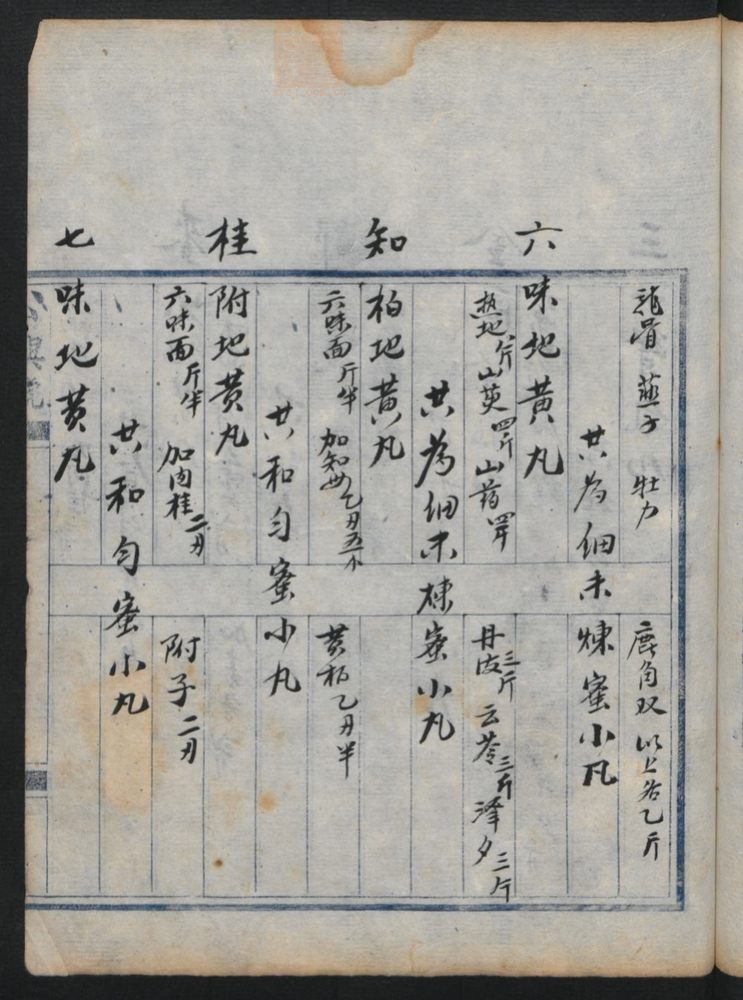 龍骨 燕子 牡力 鹿角双 以上各乙斤
共为细末 煉蜜小凡
六味地黄丸
熟地八斤 山萸四斤 山药四斤 丹皮三斤 云苓三斤 泽夕三斤
共为细末 煉蜜小丸
知柏地黄丸
六味面斤半 加知母乙刃五小 黄柏乙刃半
共和匀蜜小丸
桂附地黄丸
六味面斤半 加肉桂二刃 附子二刃
共和匀蜜小丸
七味地黄丸